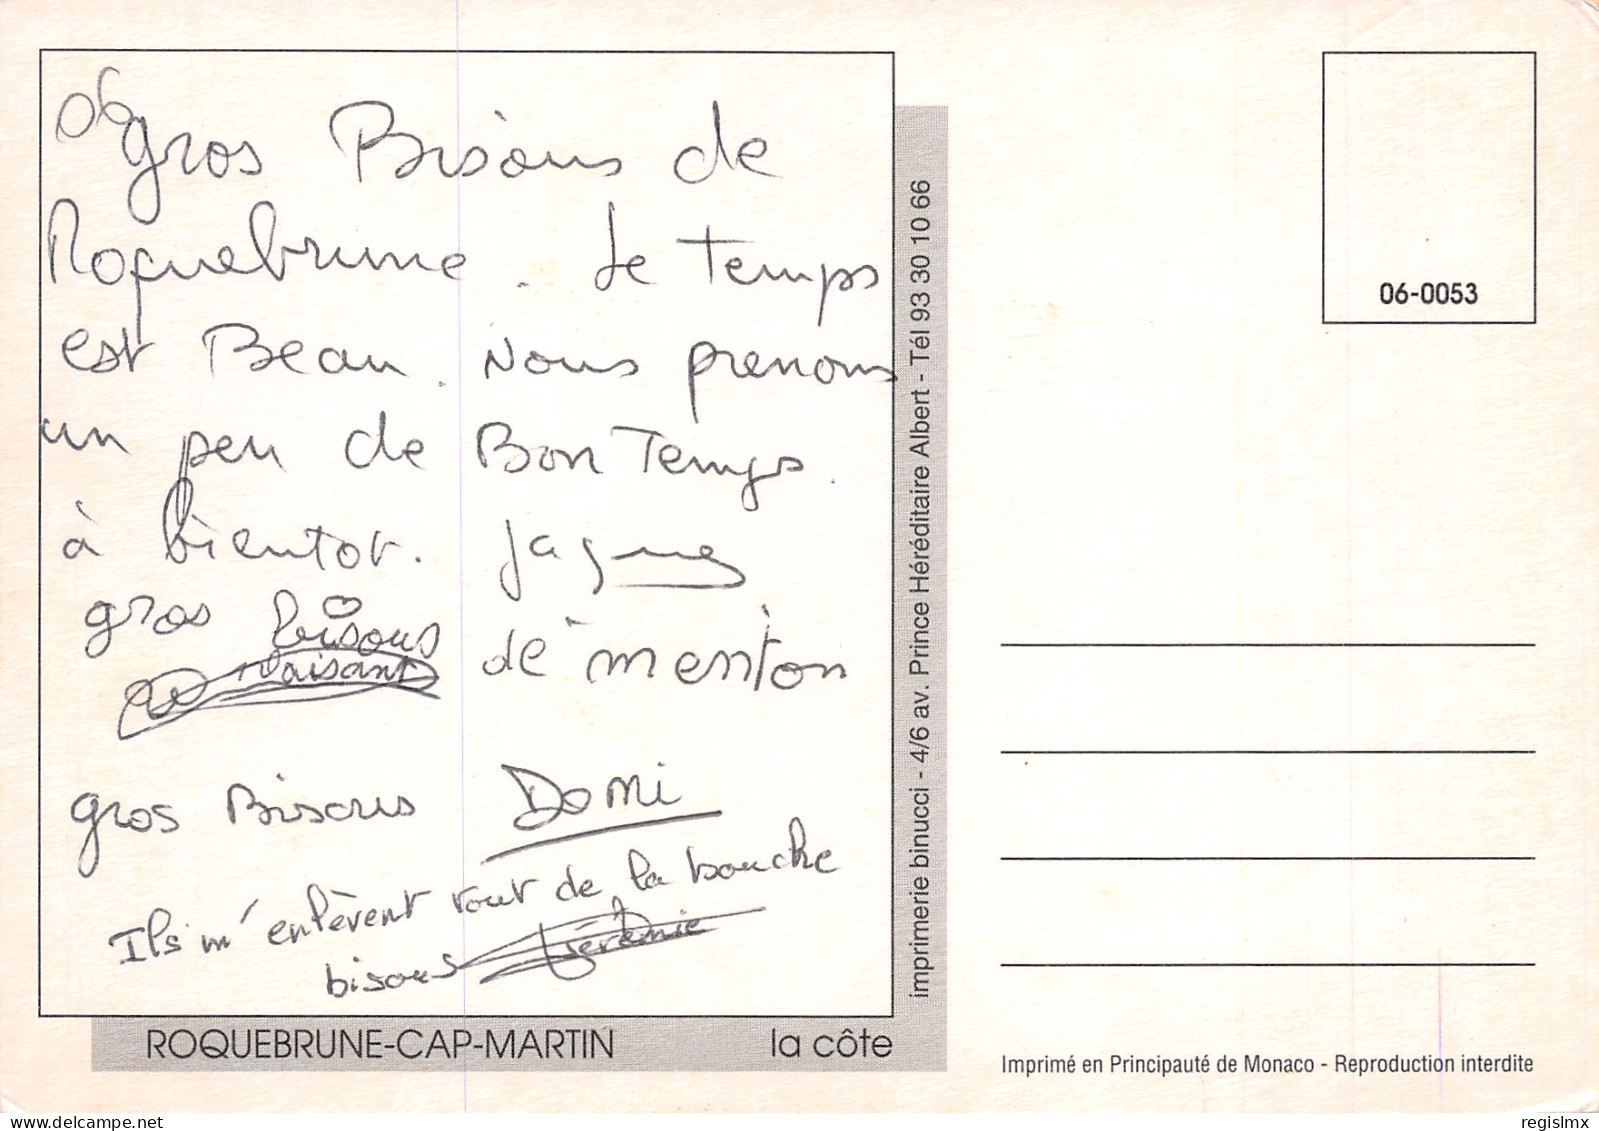 06
gros Bisous de
Roquebrune. Le Temps
est Beau. Nous prenons
un peu de Bon Temps.
à bientot. Jaques
gros bisous de menton
gros Bisous Domi
Ils m'enlèvent tout de la bouche
bisous Jérémie
ROQUEBRUNE-CAP-MARTIN la côte
imprimerie binucci - 4/6 av. Prince Héréditaire Albert - Tél 93 30 10 66
06-0053
Imprimé en Principauté de Monaco - Reproduction interdite
www.delcampe.net
regislmx